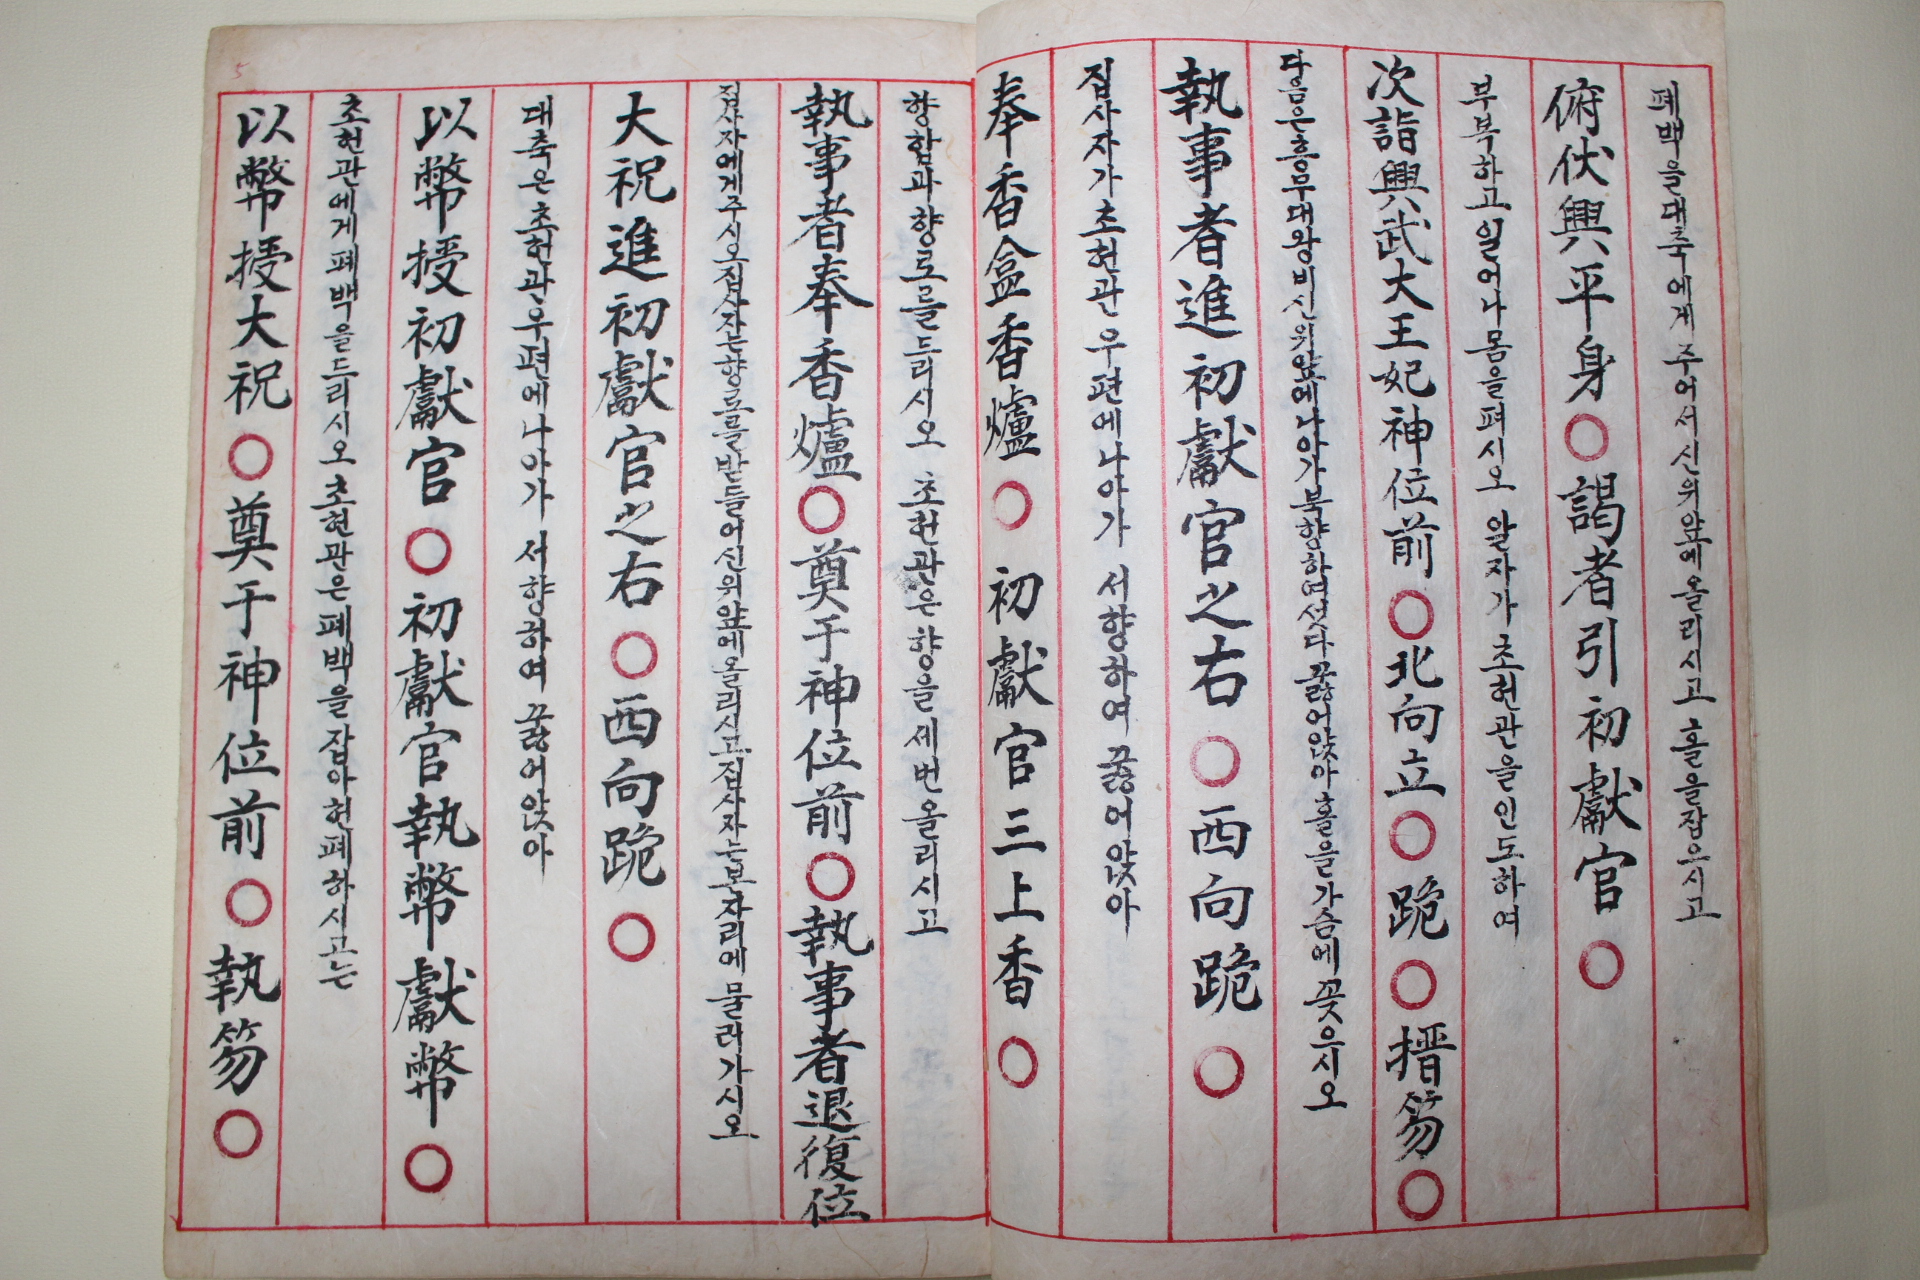 폐백을대축에게 주어서신위앞에올리시고 홀을잡으시고
俯伏興平身○謁者引初獻官○
부복하고일어나 몸을펴시오 알자가 초헌관을인도하여
次詣興武大王妃神位前○北向立○跪○搢笏○
다음은흥무대왕비신위앞에나아가북향하여섯다 꿇어앉아 홀을가슴에 꽂으시오
執事者進初獻官之右○西向跪○
집사자가초헌관우편에나아가 서향하여 꿇어앉아
奉香盒香爐○初獻官三上香○
향합과향로를드리시오 초헌관은향을세번올리시고
執事者奉香爐○奠于神位前○執事者退復位
집사자에게주시오집사자는향로를받들어신위앞에올리시고집사자는본자리에 물러가시오
大祝進初獻官之右○西向跪○
대축은초헌관우편에나아가 서향하여 꿇어앉아
以幣授初獻官○初獻官執幣獻幣○
초헌관에게폐백을드리시오 초헌관은폐백을잡아헌폐하시고는
以幣授大祝○奠于神位前○執笏○
5